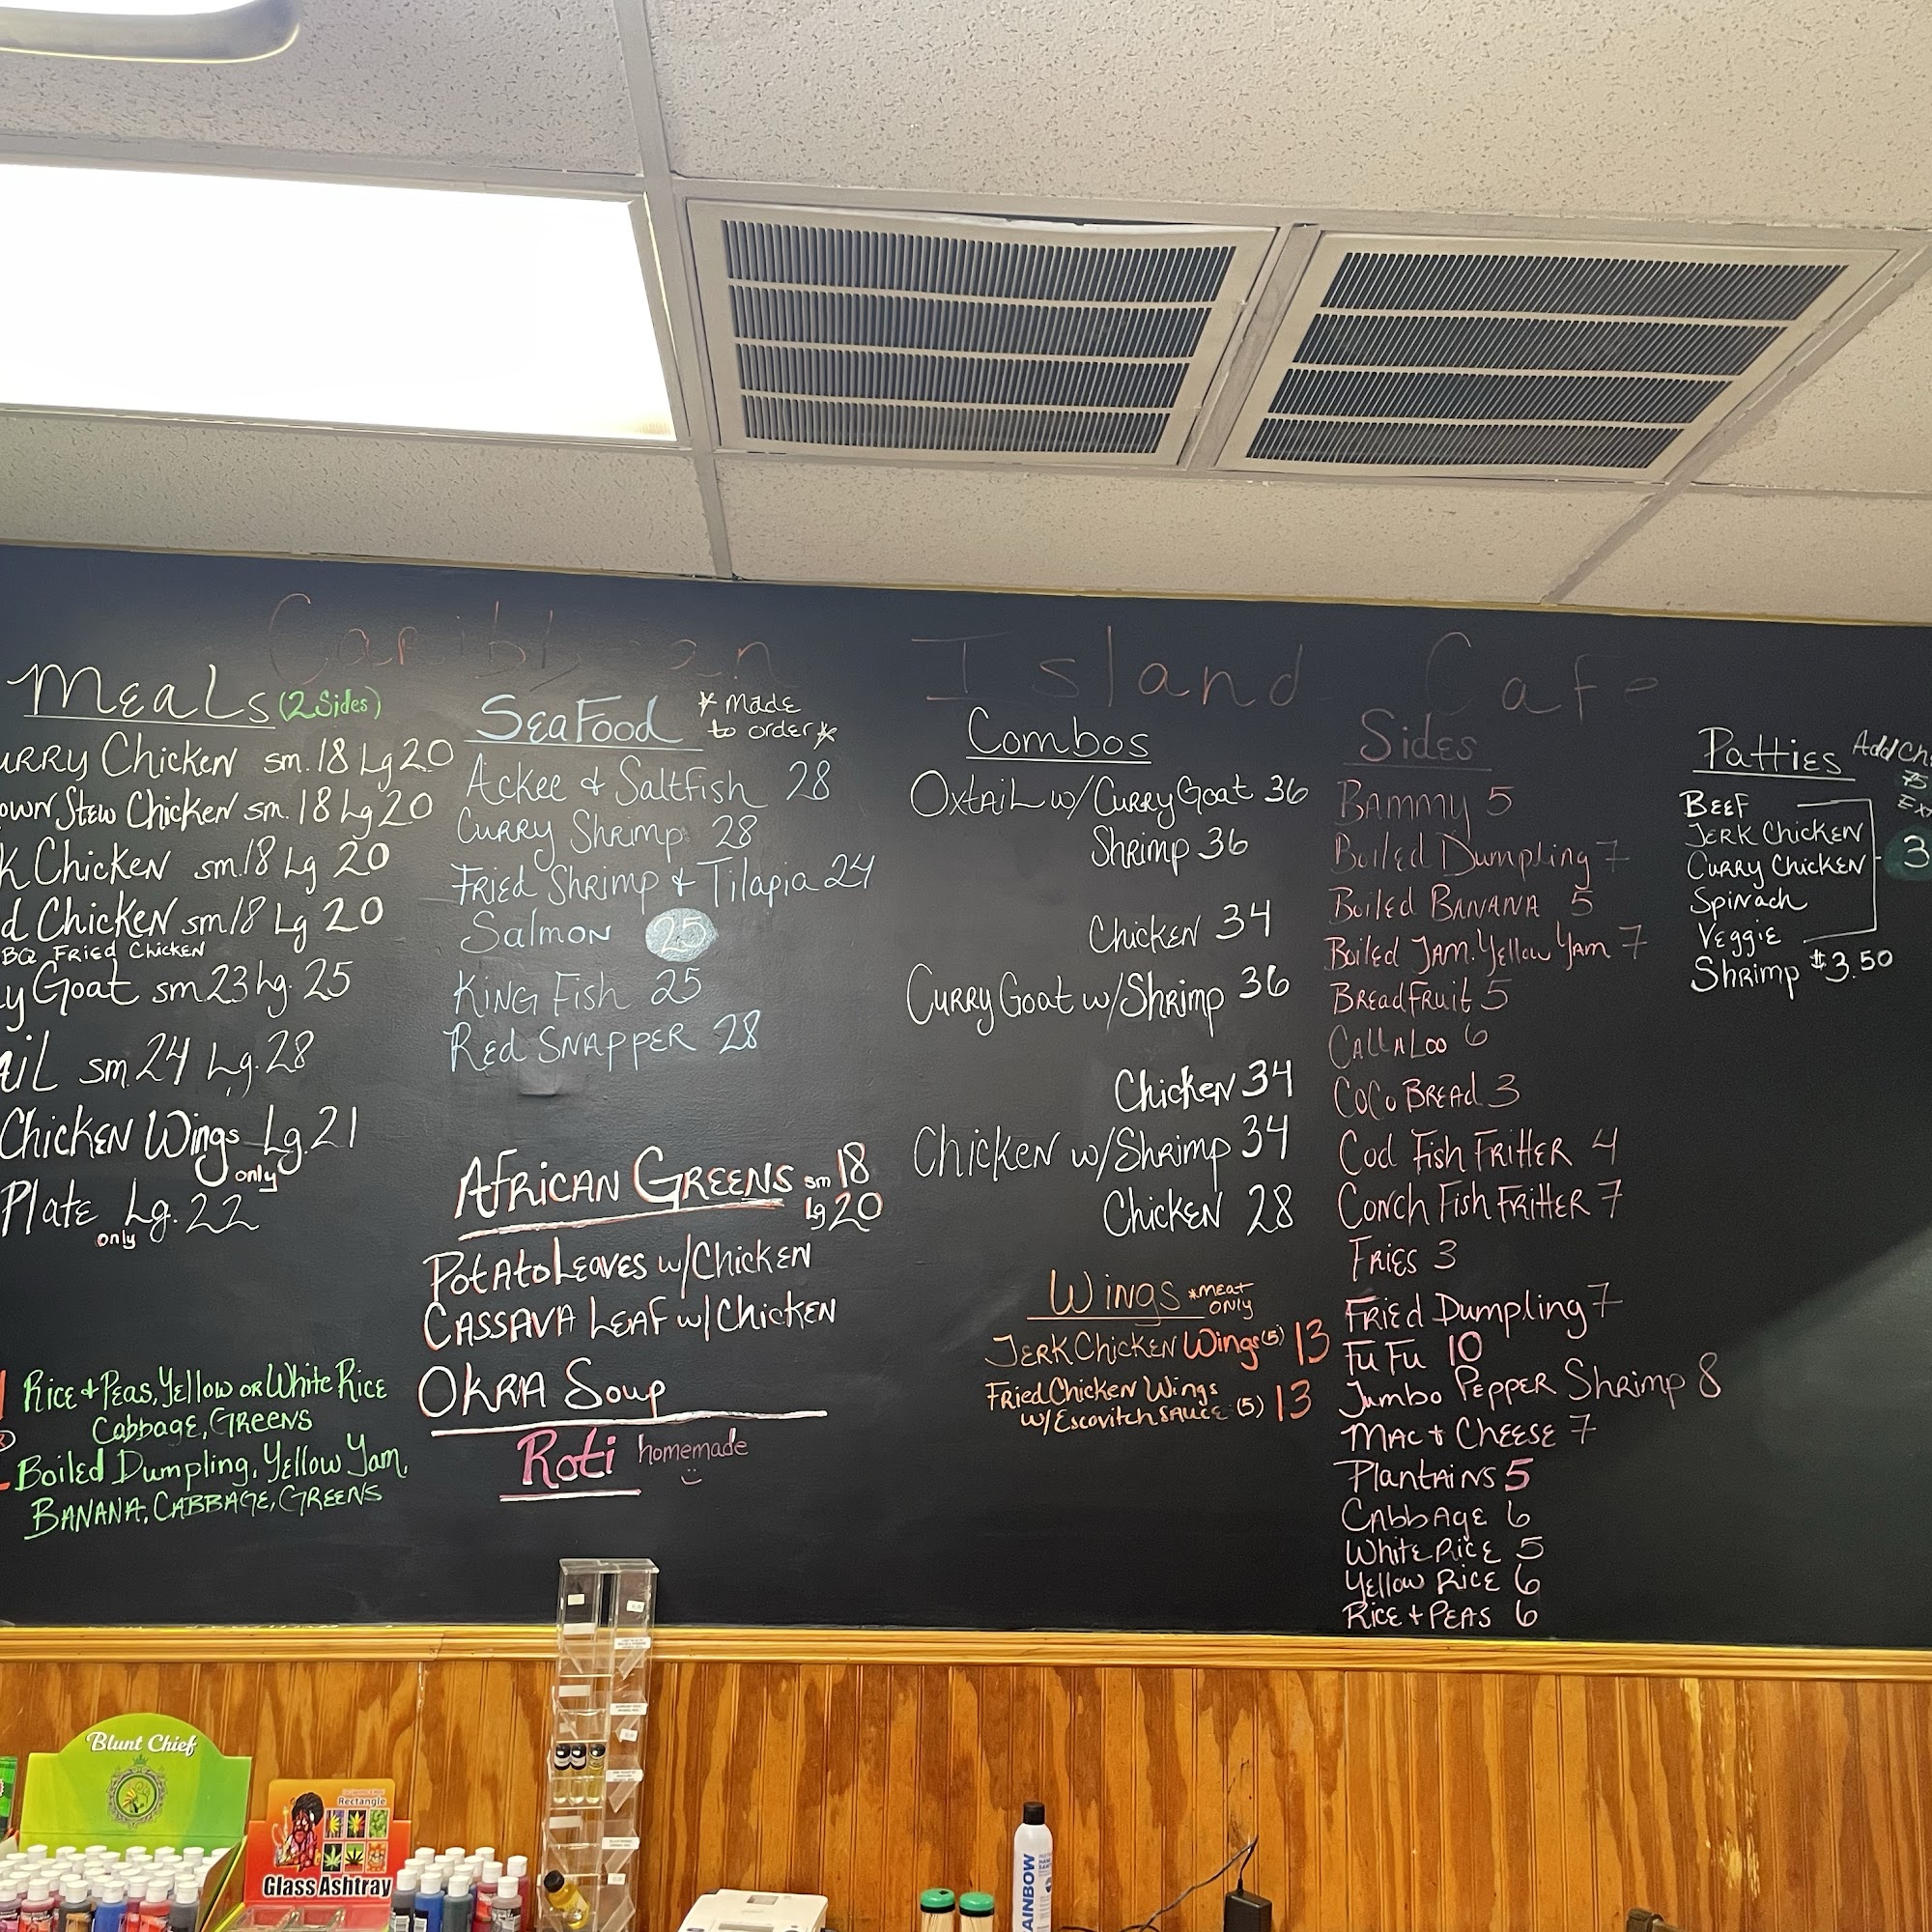 Caribbean Island Cafe
Meals (2 Sides)
urry Chicken sm. 18 Lg 20
own Stew Chicken sm. 18 Lg 20
k Chicken sm. 18 Lg 20
d Chicken sm 18 Lg 20
BQ Fried Chicken
y Goat sm 23 Lg. 25
ail sm. 24 Lg. 28
Chicken Wings Lg. 21
only
Plate Lg. 22
only
Rice + Peas, Yellow or White Rice
Cabbage, Greens
Boiled Dumpling, Yellow Yam,
Banana, Cabbage, Greens
SeaFood * made
to order *
Ackee & Saltfish 28
Curry Shrimp 28
Fried Shrimp + Tilapia 24
Salmon 25
King Fish 25
Red Snapper 28
African Greens sm 18
Lg 20
Potato Leaves w/Chicken
Cassava Leaf w/Chicken
Okra Soup
Roti homemade
Combos
Oxtail w/Curry Goat 36
Shrimp 36
Chicken 34
Curry Goat w/Shrimp 36
Chicken 34
Chicken w/Shrimp 34
Chicken 28
Wings *meat
only
Jerk Chicken Wings (5) 13
Fried Chicken Wings
w/Escovitch Sauce (5) 13
Sides
Bammy 5
Boiled Dumpling 7
Boiled Banana 5
Boiled Jam. Yellow Yam 7
BreadFruit 5
Callaloo 6
Coco Bread 3
Cod Fish Fritter 4
Conch Fish Fritter 7
Fries 3
Fried Dumpling 7
Fu Fu 10
Jumbo Pepper Shrimp 8
Mac + Cheese 7
Plantains 5
Cabbage 6
White Rice 5
Yellow Rice 6
Rice + Peas 6
Patties Add Ch
Beef
Jerk Chicken
Curry Chicken 3
Spinach
Veggie
Shrimp $3.50
Blunt Chief
Rectangle
Glass Ashtray
AINBOW